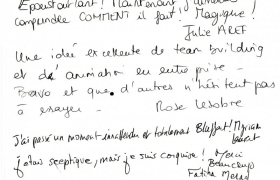 Epoustouflant ! Maintenant, j'aimerais
comprendre COMMENT il fait ! Magique !
Julie AREF
Une idée excellente de team building
et d'animation en entreprise -
Bravo et que d'autres n'hésitent pas
à essayer -
Rose Lesbore
J'ai passé un moment inattendu et totalement Bluffant ! Myriam
J'étais sceptique, mais je suis conquise ! Merci
Beaucoup
Fatiha